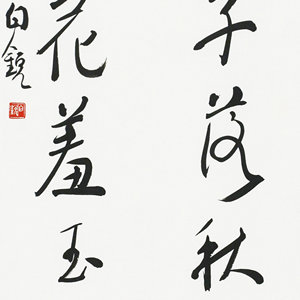 子落秋
花羞玉
白鏡